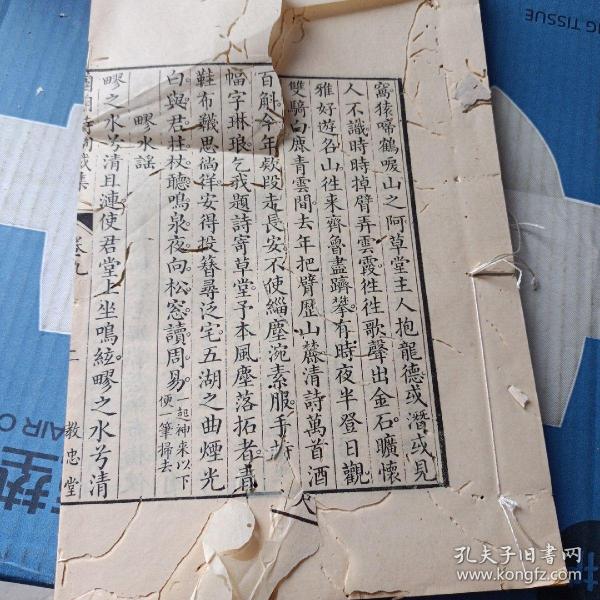 窩猿啼鶴唳山之阿草堂主人抱龍德或潛或見
人不識時時掉臂弄雲霞往往歌聲出金石曠懷
雅好遊名山往來齊魯盡躋攀有時夜半登日觀
雙騎白鹿青雲間去年把臂歷山麓清詩萬首酒
百斛今年欻段走長安不使緇塵涴素服手
幅字琳琅乞我題詩寄草堂予本風塵落拓者青
鞋布韈思徜徉安得投簪尋泛宅五湖之曲煙光
白與君拄杖聽鳴泉夜向松窓讀周易一起神來以下便一筆掃去
醪水謠
醪之水兮清且漣使君堂上坐鳴絃醪之水兮清
集
卷九
二
教忠堂
NG TISSUE
AIR O
孔夫子旧書网
www.kongfz.com